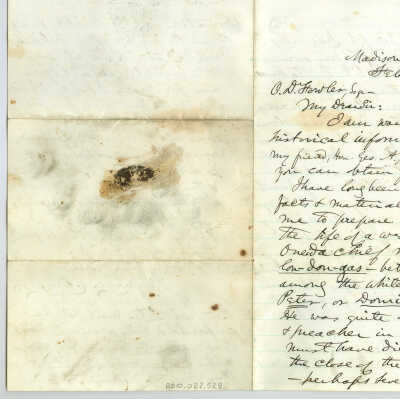 Madison
Feb
O. D. Fowler, Esq—
My Dear Sir:
I am
historical inform
my friend, Hon. Geo.
you can obtain
I have long been
facts & material
me to prepare
the life of a
Oneida chief
low-don-gas — bet
among the white
Peter, or
He was quite
& preacher in
must have di
the close of the
— perhaps